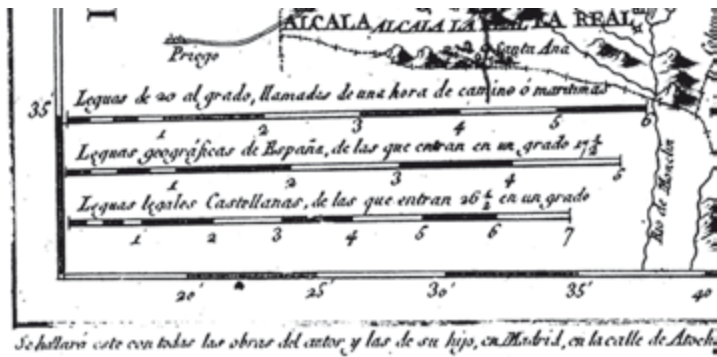 ALCALA ALCALA LA REAL LA REAL
Priego
Santa Ana
35'
Leguas de 20 al grado, llamadas de una hora de camino ó maritimas
1 2 3 4 5 6
Leguas geográficas de España, de las que entran en un grado 17 1/2
1 2 3 4 5
Leguas legales Castellanas, de las que entran 26 1/2 en un grado
1 2 3 4 5 6 7
Rio de Monclin
20' 25' 30' 35' 40
Se hallará este con todas las obras del autor y las de su hijo, en Madrid, en la calle de Atoch